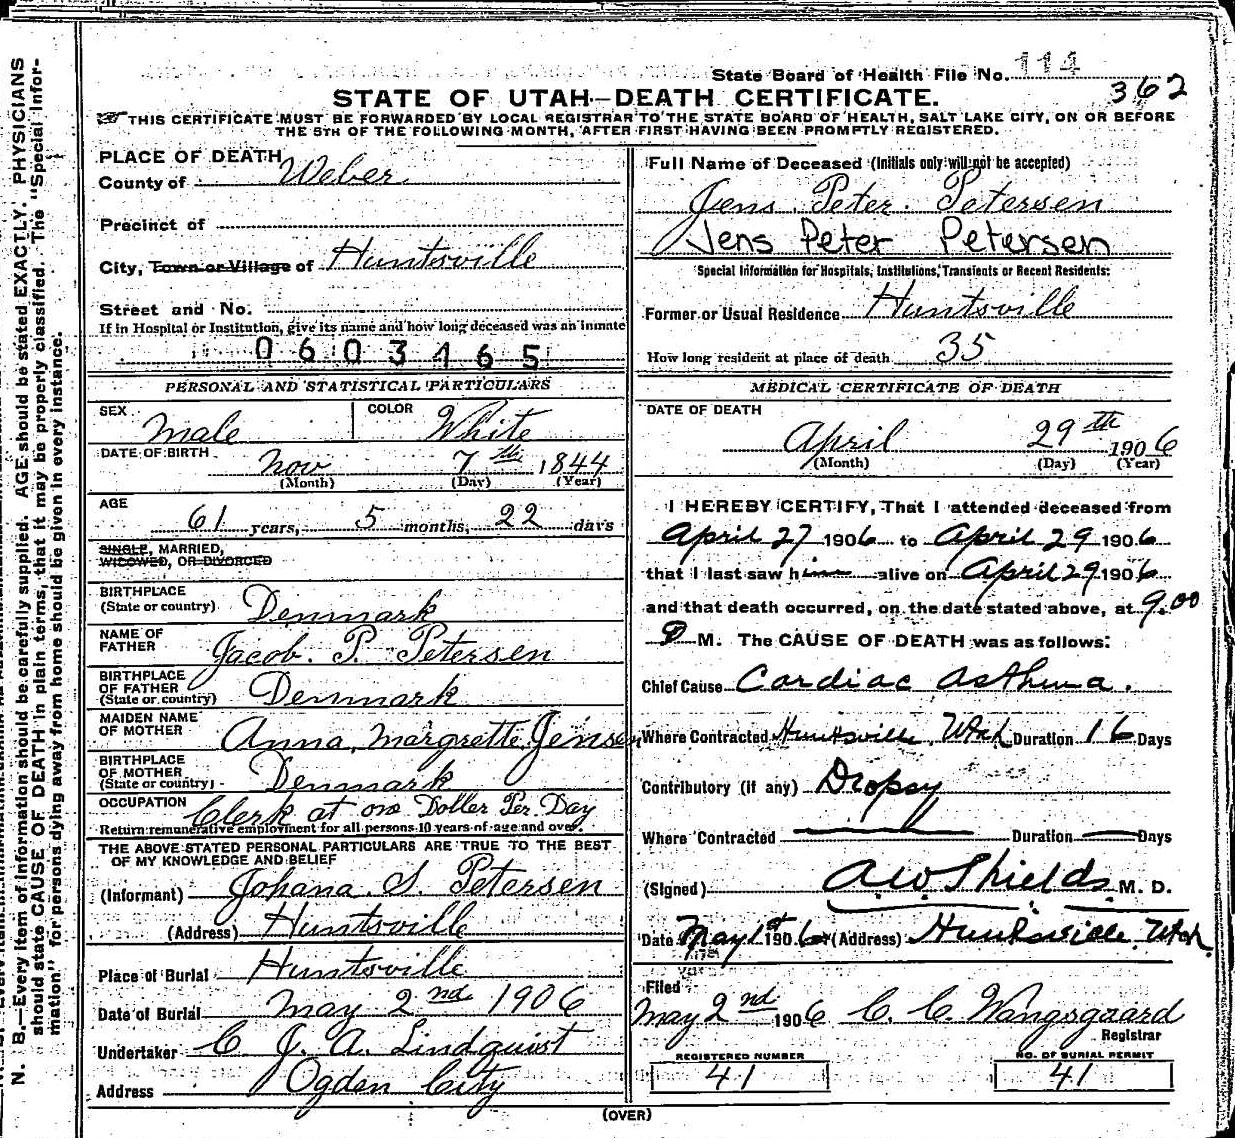 State Board of Health File No. 114
362
STATE OF UTAH—DEATH CERTIFICATE.
THIS CERTIFICATE MUST BE FORWARDED BY LOCAL REGISTRAR TO THE STATE BOARD OF HEALTH, SALT LAKE CITY, ON OR BEFORE
THE 5TH OF THE FOLLOWING MONTH, AFTER FIRST HAVING BEEN PROMPTLY REGISTERED.
N. B.—Every item of information should be carefully supplied. AGE should be stated EXACTLY. PHYSICIANS
should state CAUSE OF DEATH in plain terms, that it may be properly classified. The "Special Infor-
mation" for persons dying away from home should be given in every instance.
PLACE OF DEATH
County of Weber
Precinct of
City, Town or Village of Huntsville
Street and No.
If in Hospital or Institution, give its name and how long deceased was an inmate
0603465
PERSONAL AND STATISTICAL PARTICULARS
SEX Male COLOR White
DATE OF BIRTH Nov 7th, 1844
(Month) (Day) (Year)
AGE 61 years, 5 months, 22 days
SINGLE, MARRIED,
WIDOWED, OR DIVORCED
BIRTHPLACE
(State or country) Denmark
NAME OF
FATHER Jacob. P. Petersen
BIRTHPLACE
OF FATHER
(State or country) Denmark
MAIDEN NAME
OF MOTHER Anna, Margrette Jensen
BIRTHPLACE
OF MOTHER
(State or country) Denmark
OCCUPATION Clerk at one Doller Per Day
Return remunerative employment for all persons 10 years of age and over.
THE ABOVE STATED PERSONAL PARTICULARS ARE TRUE TO THE BEST
OF MY KNOWLEDGE AND BELIEF
(Informant) Johana. S. Petersen
(Address) Huntsville
Place of Burial Huntsville
Date of Burial May 2nd 1906
Undertaker C J. A. Lindquist
Address Ogden City
Full Name of Deceased (Initials only will not be accepted)
Jens. Peter. Petersen
Jens Peter Petersen
Special Information for Hospitals, Institutions, Transients or Recent Residents:
Former or Usual Residence Huntsville
How long resident at place of death 35
MEDICAL CERTIFICATE OF DEATH
DATE OF DEATH
April 29th 1906
(Month) (Day) (Year)
I HEREBY CERTIFY, That I attended deceased from
April 27 1906 to April 29 1906
that I last saw him alive on April 29 1906
and that death occurred, on the date stated above, at 9.00
P M. The CAUSE OF DEATH was as follows:
Chief Cause Cardiac Asthma.
Where Contracted Huntsville, Utah Duration 16 Days
Contributory (if any) Dropsy
Where Contracted Duration Days
(Signed) A W Shields M. D.
Date May 1st 1906 (Address) Huntsville, Utah
Filed
May 2nd 1906 C. C. Wangsgaard
Registrar
REGISTERED NUMBER NO. OF BURIAL PERMIT
41 41
(OVER)